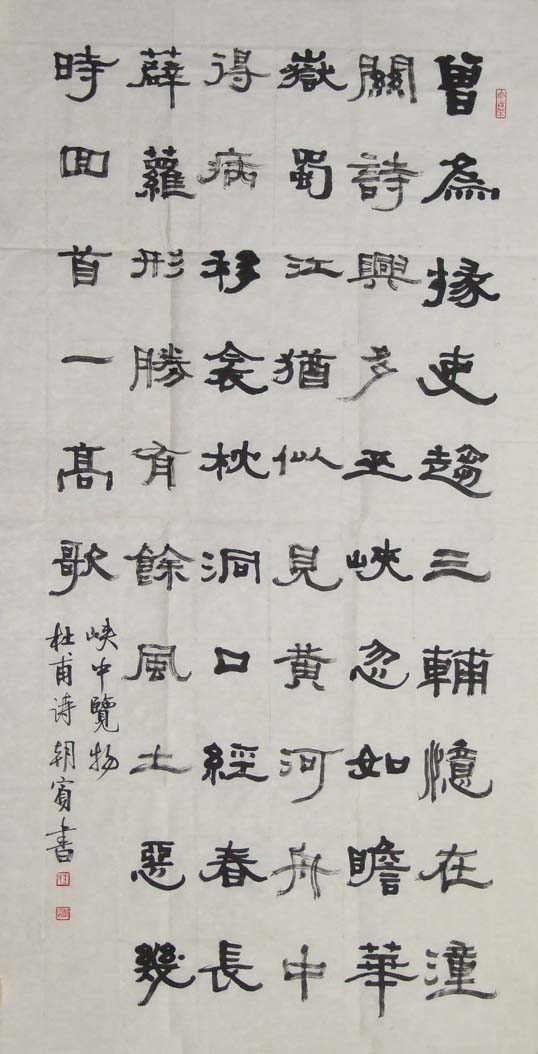 曾為掾吏趨三輔憶在潼
關詩興多巫峽忽如瞻華
嶽蜀江猶似見黃河舟中
得病移衾枕洞口經春長
薜蘿形勝有餘風土惡幾
時回首一高歌
峽中覽物
杜甫诗朝賓書